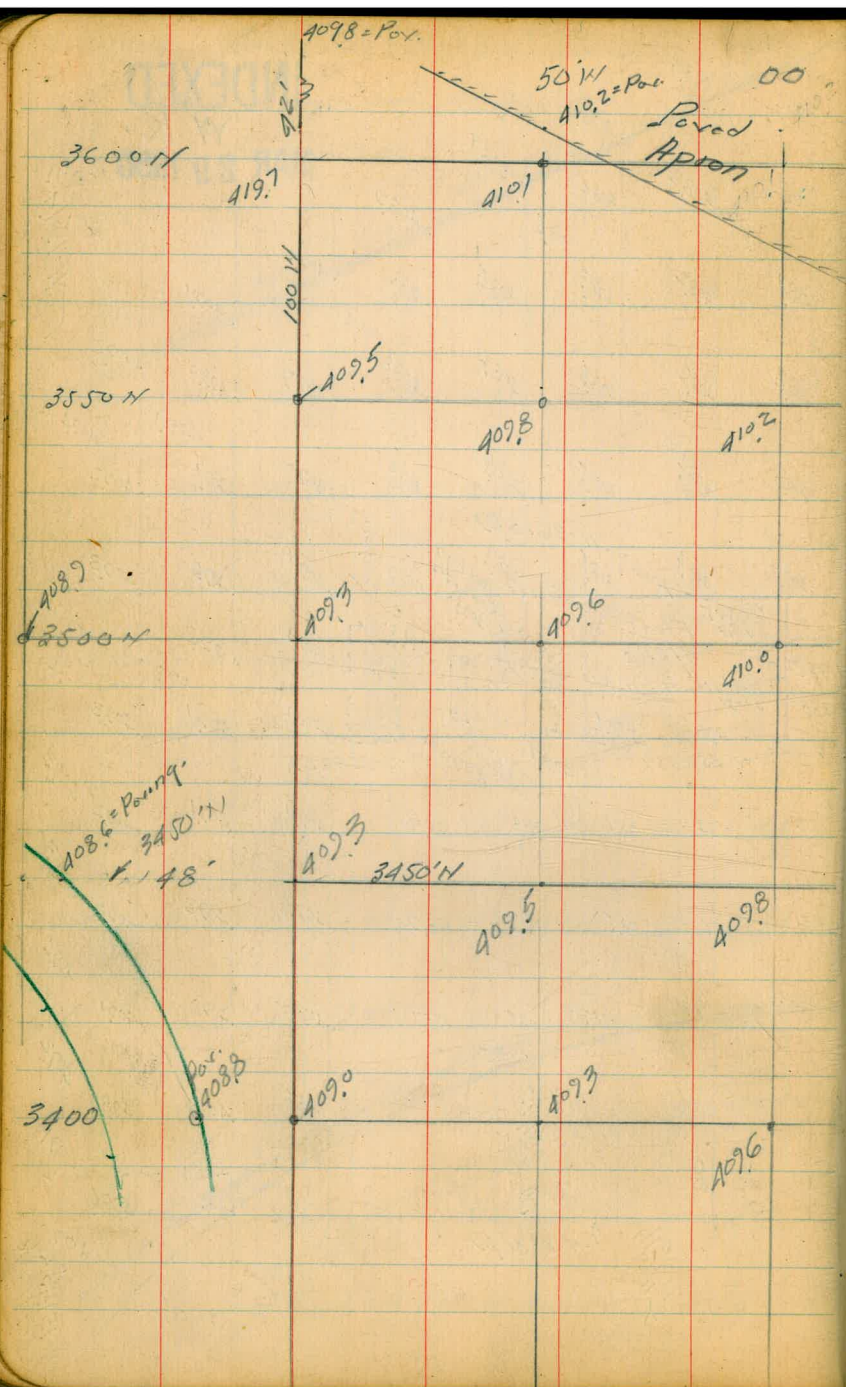 409.8 = Pav.
50'W
00
410.2 = Pav.
42'
Paved
Apron
3600N
419.7
410.1
100 W
409.5
3550N
409.8
410.2
408.9
3500N
409.3
409.6
410.0
408.6 = Paving.
3450'N
148'
409.3
3450'N
409.5
409.8
Pav.
408.8
3400
409.0
409.3
409.6